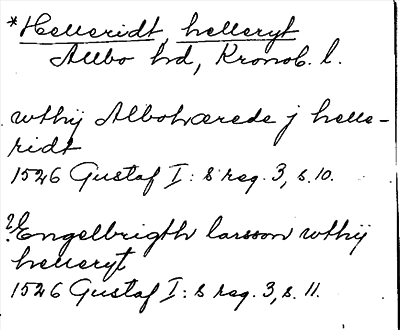 *Helleridt, helleryt
Allbo hd, Kronob. l.
wthij Albohærede j helle-
ridt
1526 Gustaf I: s reg. 3, s. 10.
? Engelbrigth larsson wthij
helleryt
1526 Gustaf I: s reg. 3, s. 11.